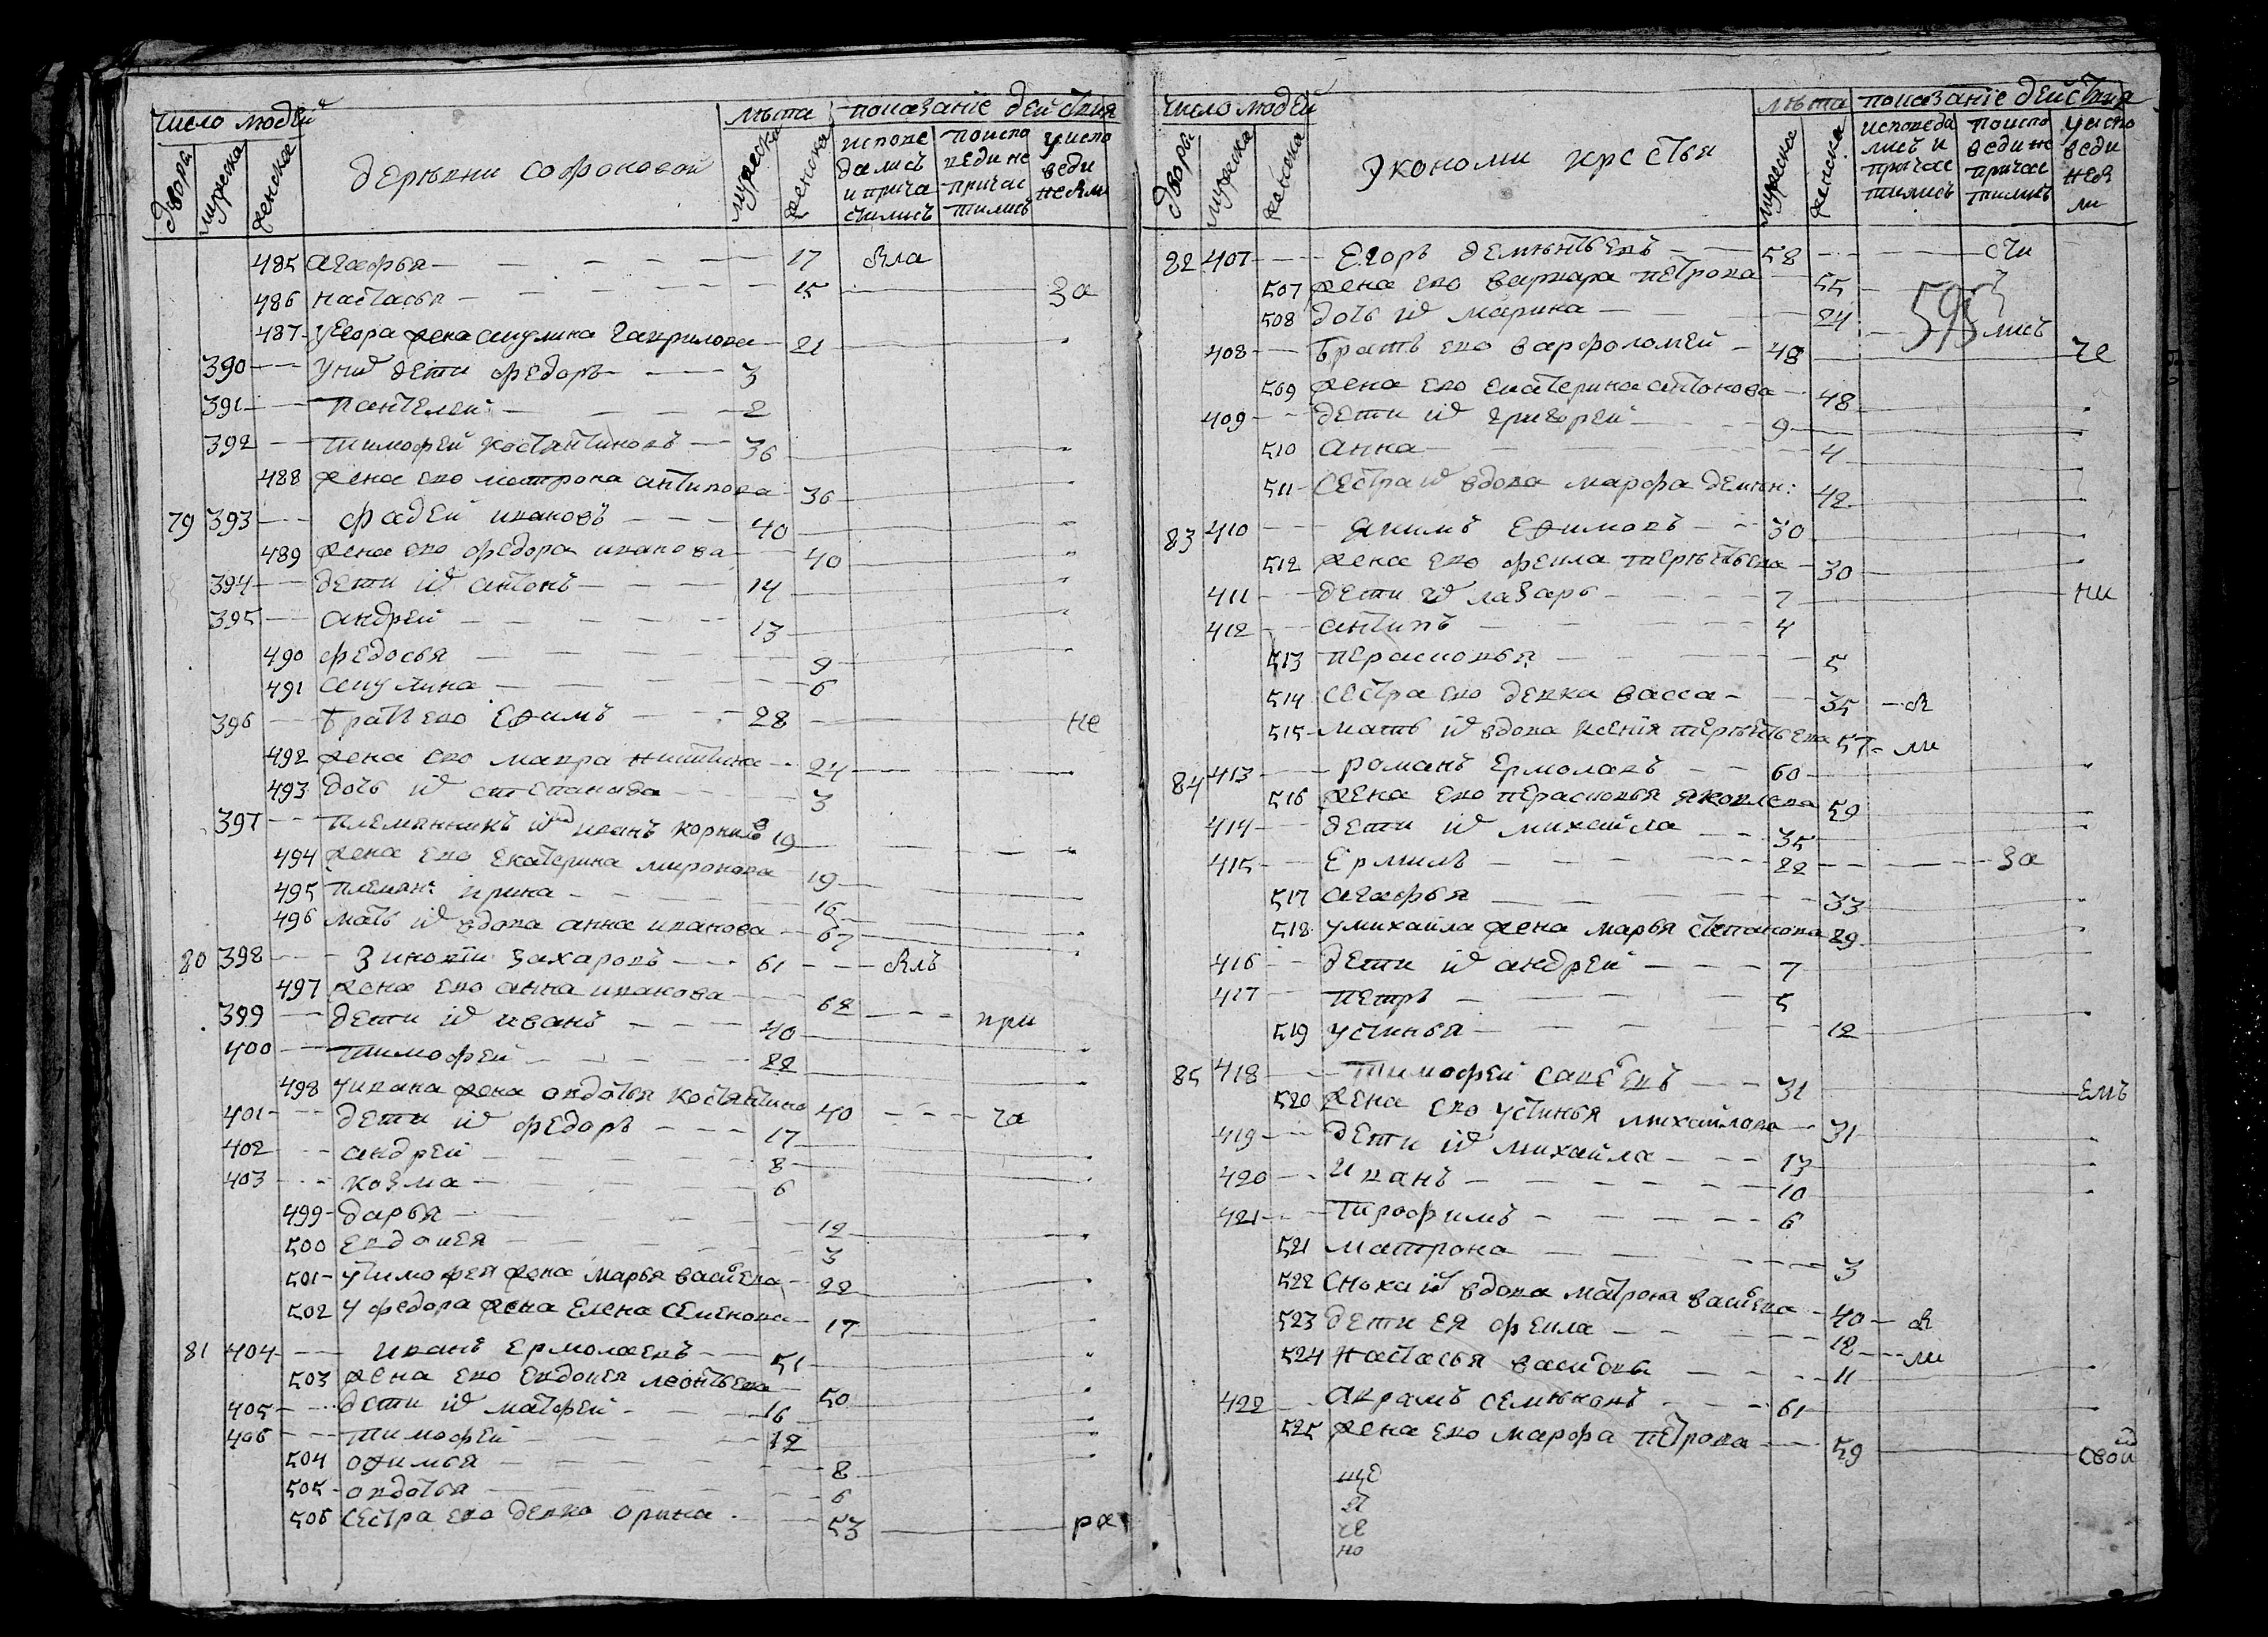 число людей
лѣта
показаніе действия
двора
мужеска
женска
деревни софоновой
мужеска
женска
испове
дались
и прича
стились
поиспо
веди не
причас
тились
уиспо
веди
небыли
485 агафья 17 была
486 настасья 15 за
487 уегора жена акулина гаврилова 21
390 унихъ дети федоръ 3
391 пантелей 2
392 тимофей костантиновъ 36
488 жена ево матрона антипова 36
79 393 фадей ивановъ 40
489 жена ево федора иванова 40
394 дети ихъ антонъ 14
395 андрей 13
490 федосья 9
491 акулина 6
396 братъ ево ефимъ 28 не
492 жена ево мавра никитина 24
493 дочь ихъ степанида 3
397 племянникъ ихъ иванъ корнилов 19
494 жена ево екатерина миронова 19
495 племян: ирина 16
496 мать ихъ вдова анна иванова 67
80 398 зиновеи захаровъ 61 былъ
497 жена ево анна иванова 62
399 дети ихъ иванъ 40 при
400 тимофей 22
498 уивана жена овдотья костянтино 40 ча
401 дети ихъ федоръ 17
402 андрей 8
403 козма 6
499 дарья 12
500 евдокея 3
501 утимофея жена марья васильева 22
502 уфедора жена елена семенова 17
81 404 иванъ ермолаевъ 51
503 жена ево евдокея леонтьева 50
405 дети ихъ матфей 16
406 тимофей 12
504 офимья 8
505 овдотья 6
506 сестра ево девка орина 53 ра
число людей
лѣта
показаніе действия
двора
мужеска
женска
экономи крестьи
мужеска
женска
исповеда
лись и
причас
тились
поиспо
веди не
причас
тились
уиспо
веди
небы
ли
82 407 егоръ дементьевъ 58 сти
507 жена ево варвара петрова 55
595
508 дочь ихъ марина 24 лись
408 братъ ево варфоломей 48 че
509 жена ево екатерина антонова 48
409 дети ихъ григорей 9
510 анна 4
511 сестра ихъ вдова марфа демен: 42
83 410 якимъ ефимовъ 30
512 жена ево фекла терентьева 30
411 дети ихъ лазарь 7 ни
412 антипъ 4
513 перасковья 5
514 сестра ево девка васса 35 бы
515 мать ихъ вдова ксения терентьева 57 ли
84 413 романъ ермолаевъ 60
516 жена ево перасковья яковлева 59
414 дети ихъ михайла 35
415 ермилъ 22 за
517 агафья 33
518 умихайла жена марья степанова 29
416 дети ихъ андрей 7
417 петръ 5
519 устинья 12
85 418 тимофей савельевъ 31 емъ
520 жена ево устинья михайлова 31
419 дети ихъ михайла 13
420 иванъ 10
421 трофимъ 6
521 матрона 3
522 сноха ихъ вдова матрона васильева 40 бы
523 дети ея фекла 12 ли
524 настасья васильевы 11
422 аврамъ семеновъ 61
525 жена ево марфа петрова 59 свои